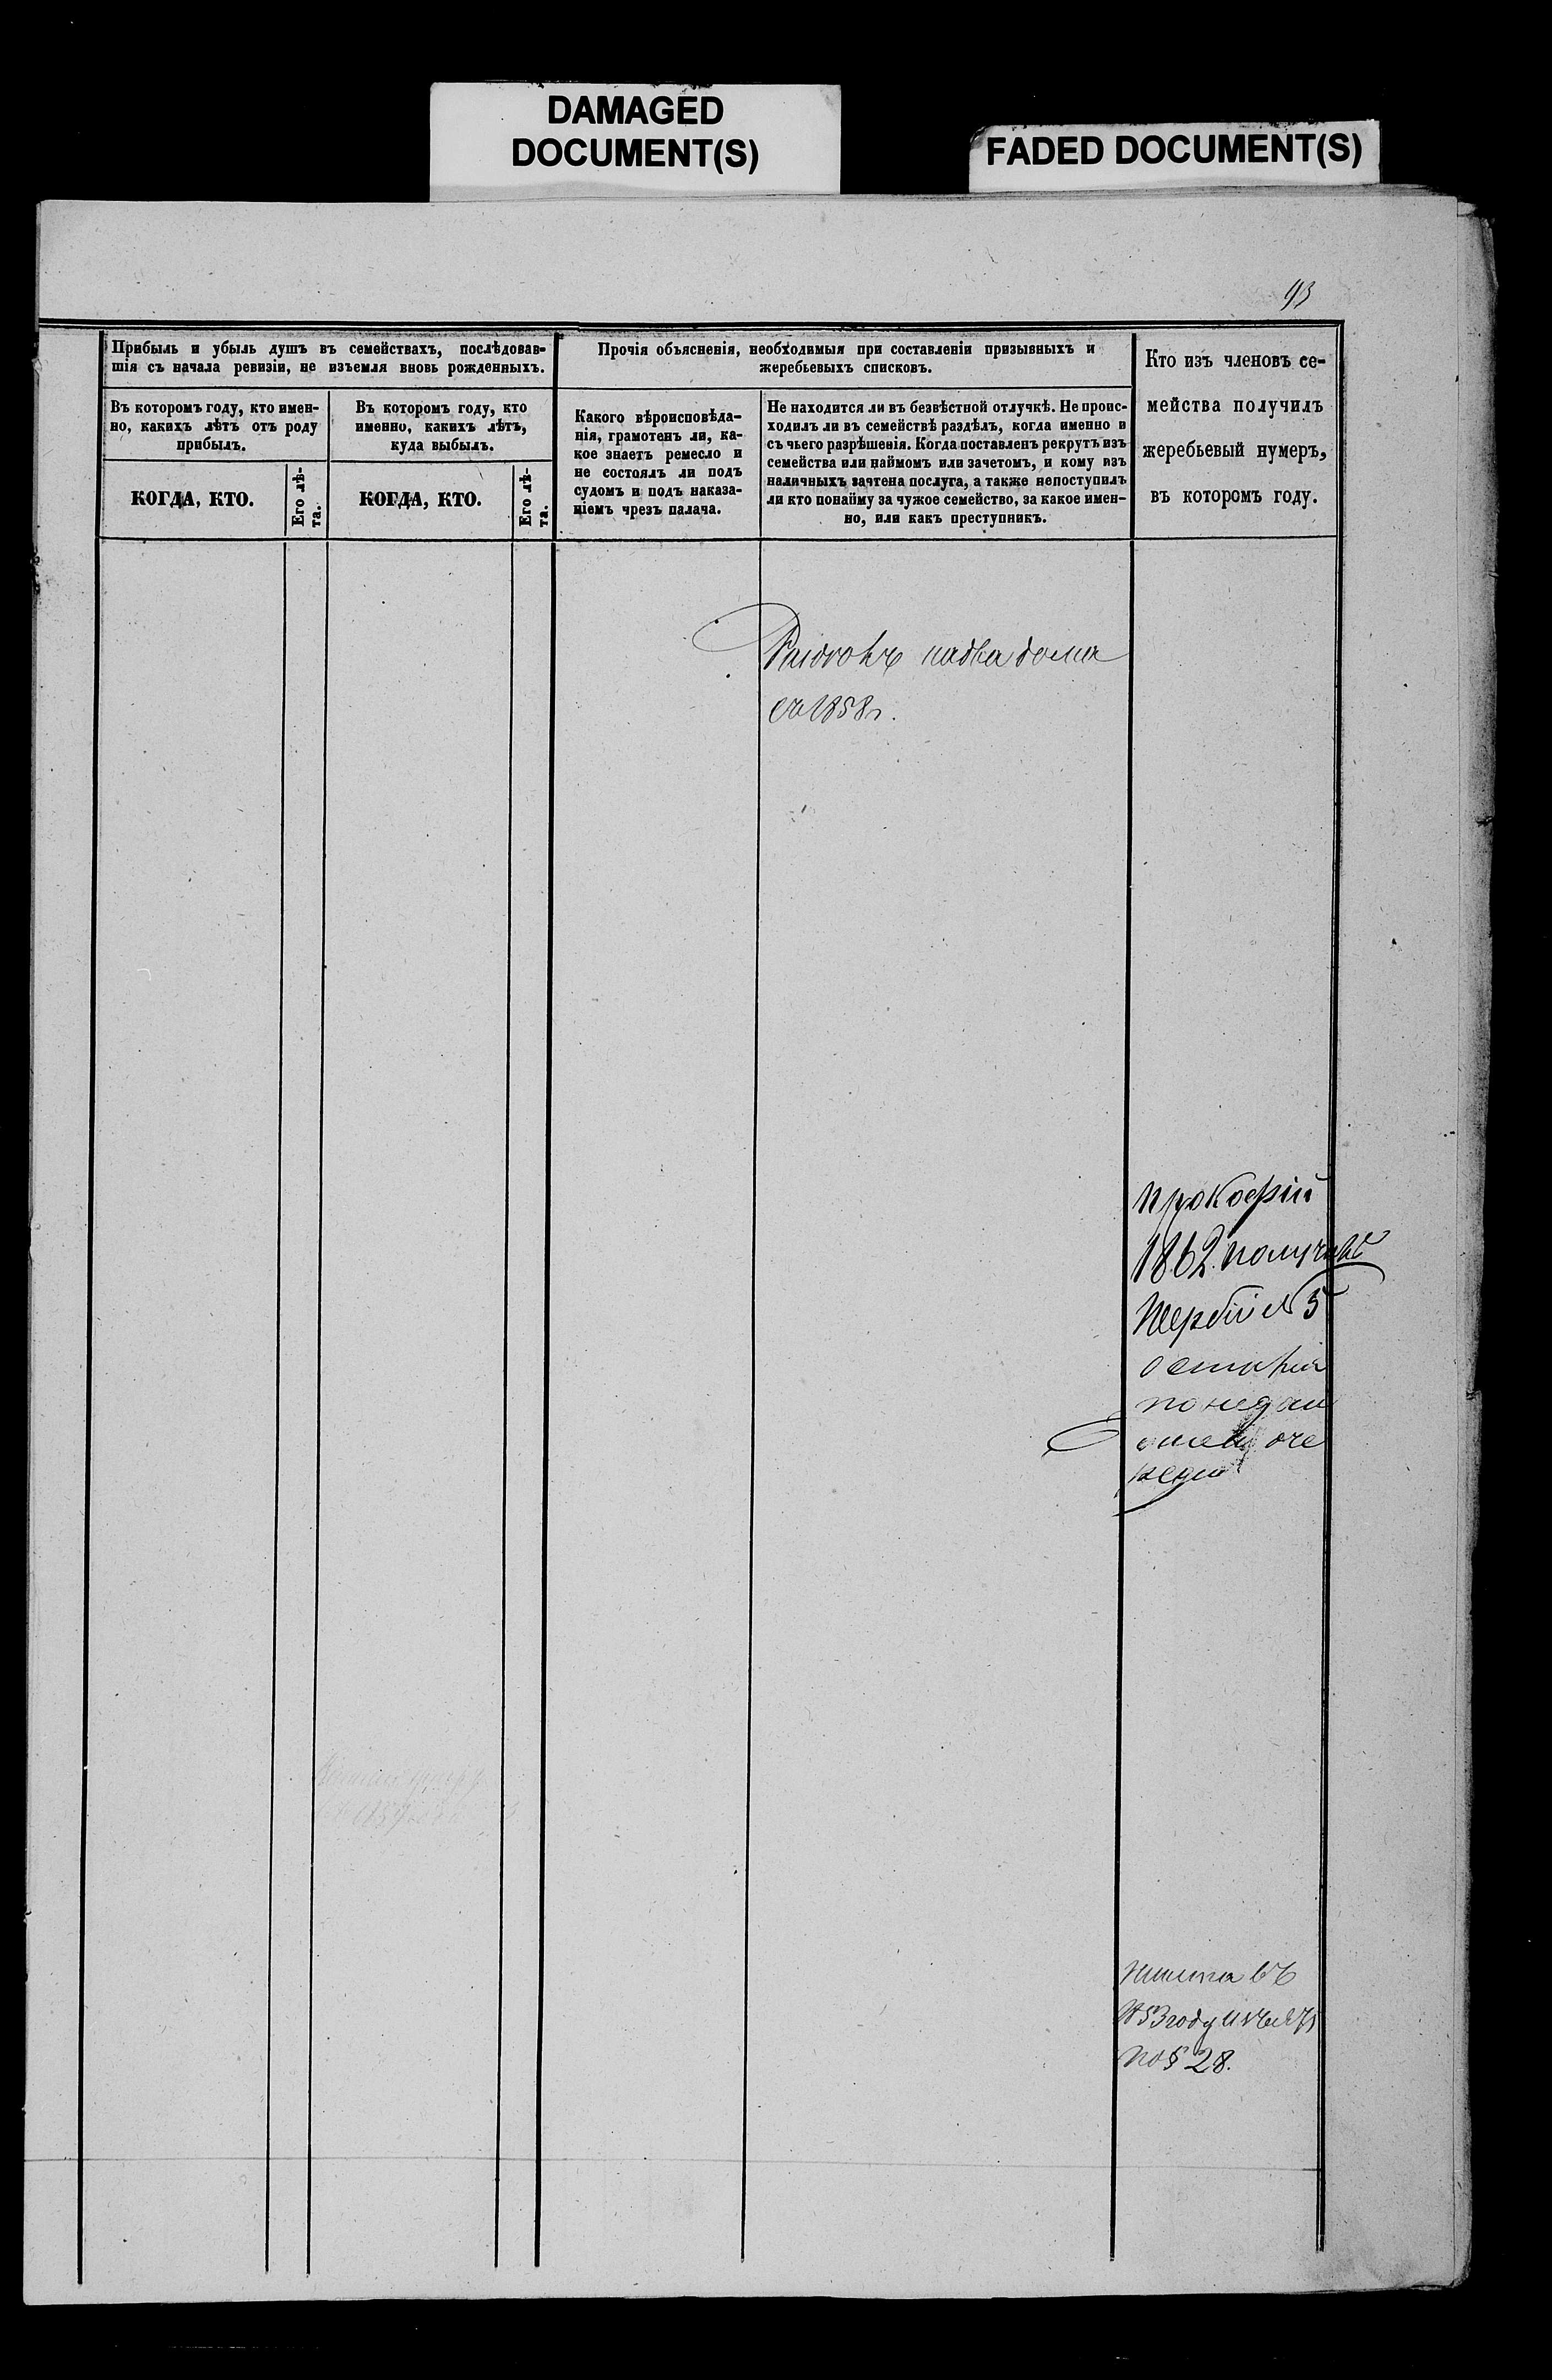 DAMAGED
DOCUMENT(S)
FADED DOCUMENT(S)
93
Прибыль и убыль душъ въ семействахъ, послѣдовав-
шія съ начала ревизіи, не изъемля вновь рожденныхъ.
Прочія объясненія, необходимыя при составленіи призывныхъ и
жеребьевыхъ списковъ.
Кто изъ членовъ се-
мейства получилъ
жеребьевый нумеръ,
въ которомъ году.
Въ которомъ году, кто имен-
но, какихъ лѣтъ отъ роду
прибылъ.
Въ которомъ году, кто
именно, какихъ лѣтъ,
куда выбылъ.
Какого вѣроисповѣда-
нія, грамотенъ ли, ка-
кое знаетъ ремесло и
не состоялъ ли подъ
судомъ и подъ наказа-
ніемъ чрезъ палача.
Не находится ли въ безвѣстной отлучкѣ. Не проис-
ходилъ ли въ семействѣ раздѣлъ, когда именно и
съ чьего разрѣшенія. Когда поставленъ рекрутъ изъ
семейства или наймомъ или зачетомъ, и кому изъ
наличныхъ зачтена послуга, а также непоступилъ
ли кто понайму за чужое семейство, за какое имен-
но, или какъ преступникъ.
КОГДА, КТО.
Его лѣ-
та.
КОГДА, КТО.
Его лѣ-
та.
на два дома
съ 1858 г.
Прокофій
1862. получилъ
Жербій № 5
оче
реди
въ
1853 году
по § 28.